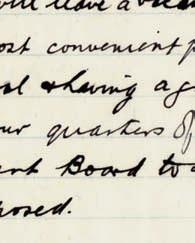 will leave a
ost convenient p
al & having a g
our quarters of
ent Board to
posed.